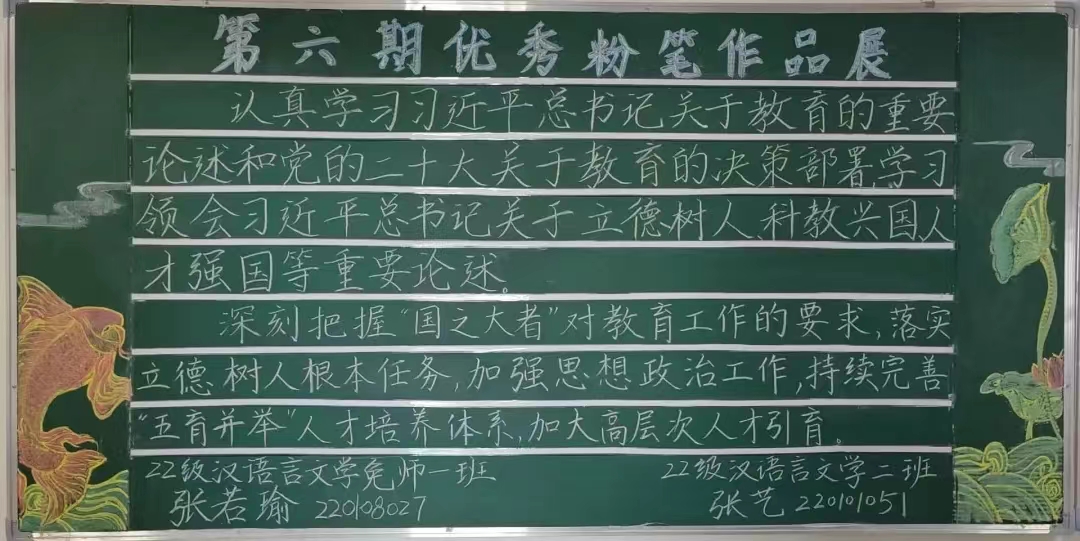 第六期优秀粉笔作品展
认真学习习近平总书记关于教育的重要
论述和党的二十大关于教育的决策部署,学习
领会习近平总书记关于立德树人、科教兴国、人
才强国等重要论述。
深刻把握“国之大者”对教育工作的要求,落实
立德树人根本任务,加强思想政治工作,持续完善
“五育并举”人才培养体系,加大高层次人才引育。
22级汉语言文学免师一班
22级汉语言文学二班
张若瑜 220108027
张艺 220101051